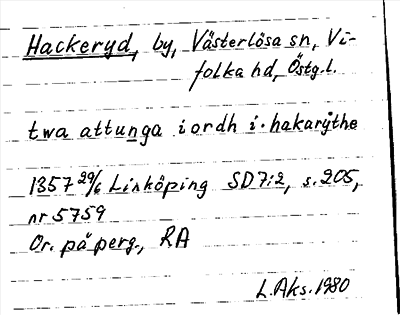 Hackeryd, by, Västerlösa sn, Vi-
folka hd, Östg.l.
twa attunga iordh i. hakarÿthe
1357 29/6 Linköping SD7:2, s. 205,
nr 5759
Or. på perg., RA
L.Aks. 1980